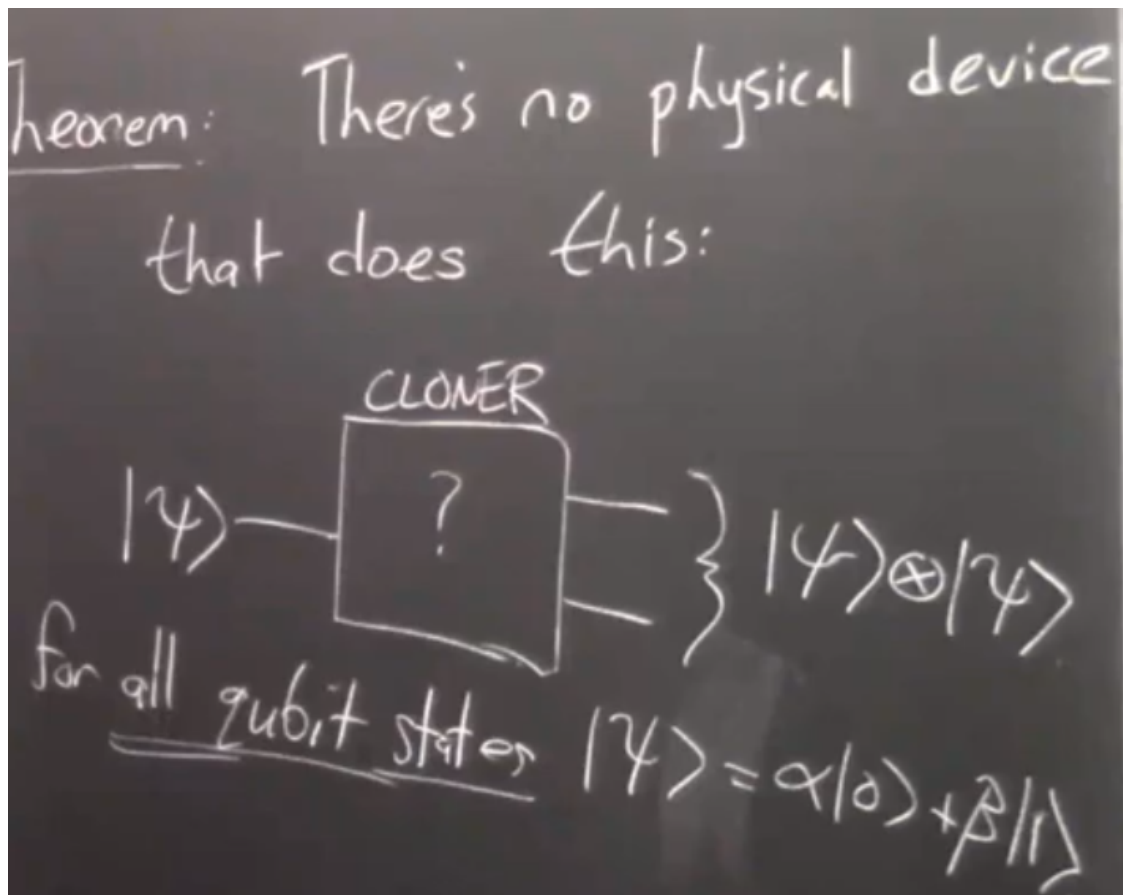 heorem: There's no physical device
that does this:
CLONER
|ψ⟩ ? } |ψ⟩⊗|ψ⟩
for all qubit states |ψ⟩ = α|0⟩+β|1⟩